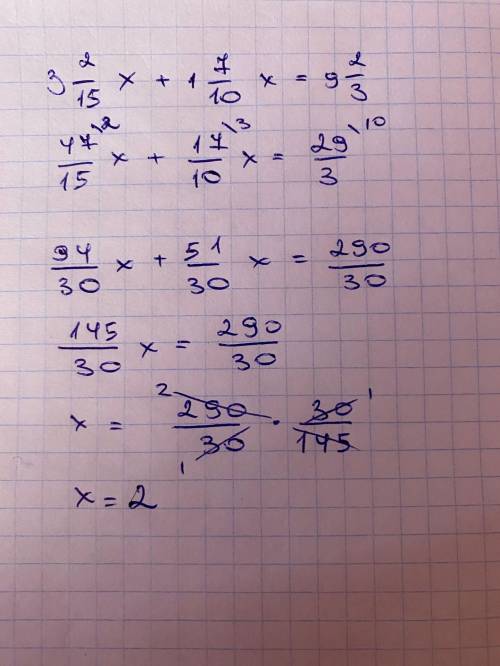 3 2/15 x + 1 7/10 x = 9 2/3
47\2/15 x + 17\3/10 x = 29\10/3
94/30 x + 51/30 x = 290/30
145/30 x = 290/30
x = 2 290/30 1 · 30 1/145
x = 2